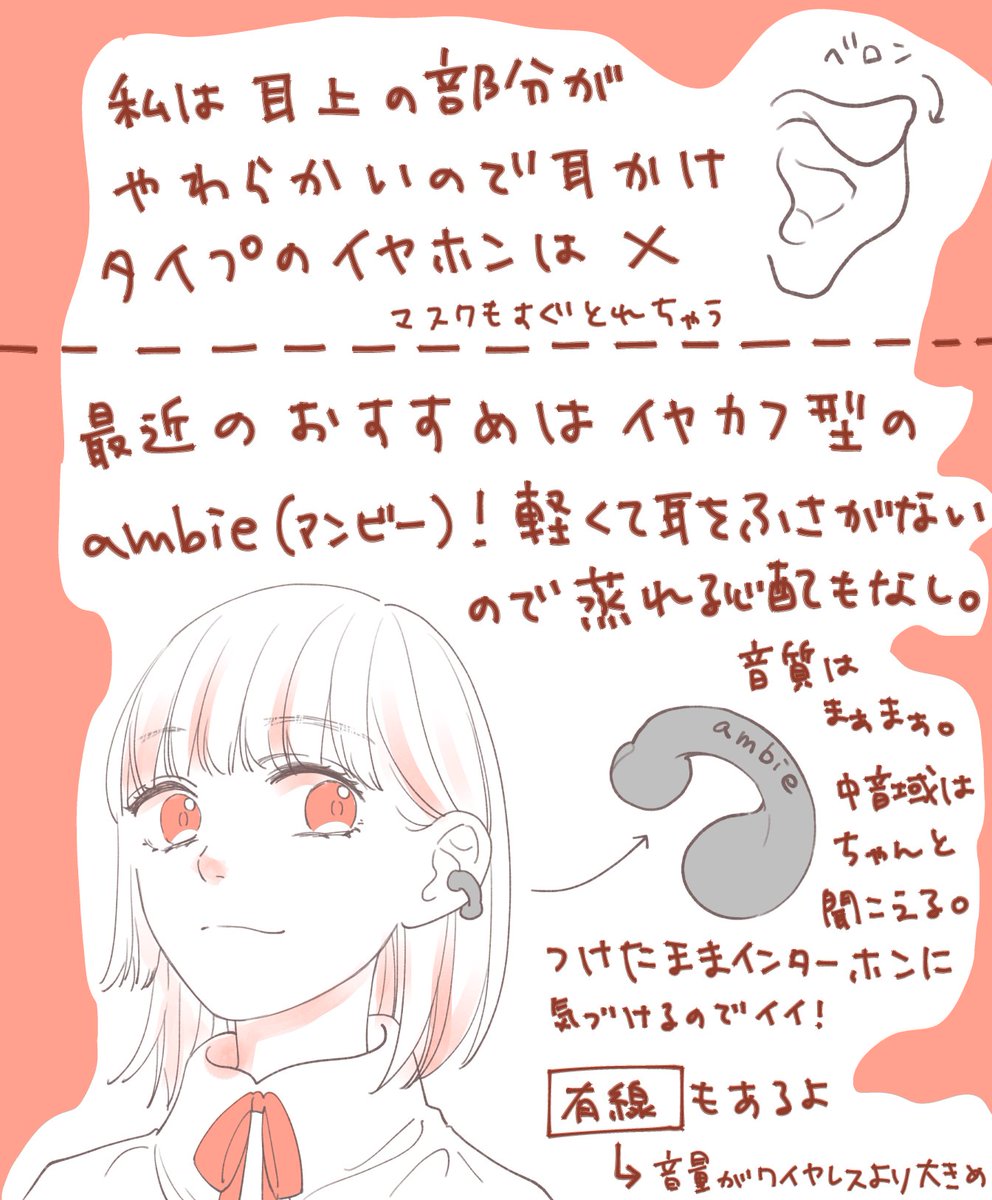 私は耳上の部分が
やわらかいので耳かけ
タイプのイヤホンは×
マスクもすぐとれちゃう
ベロン
最近のおすすめはイヤカフ型の
ambie(アンビー)!軽くて耳をふさがない
ので蒸れる心配もなし。
音質は
まぁまぁ。
中音域は
ちゃんと
聞こえる。
ambie
つけたままインターホンに
気づけるのでイイ!
有線もあるよ
↳音量がワイヤレスより大きめ